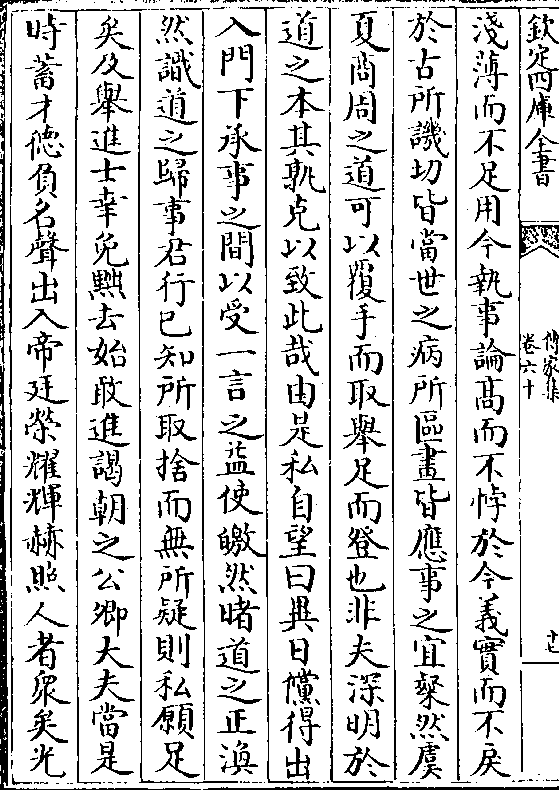 欽定四庫全書
傳家集
卷六十
十七
淺薄而不足用今執事論髙而不悖於今義實而不戾
於古所譏切皆當世之病所區畫皆應事之宜粲然虞
夏商周之道可以覆手而取舉足而登也非夫深明於
道之本其孰克以致此哉由是私自望曰異日儻得出
入門下承事之間以受一言之益使皦然睹道之正渙
然識道之歸事君行已知所取捨而無所疑則私願足
矣及舉進士幸免黜去始敢進謁朝之公卿大夫當是
時蓄才徳負名聲出入帝廷榮耀輝赫照人者衆矣光